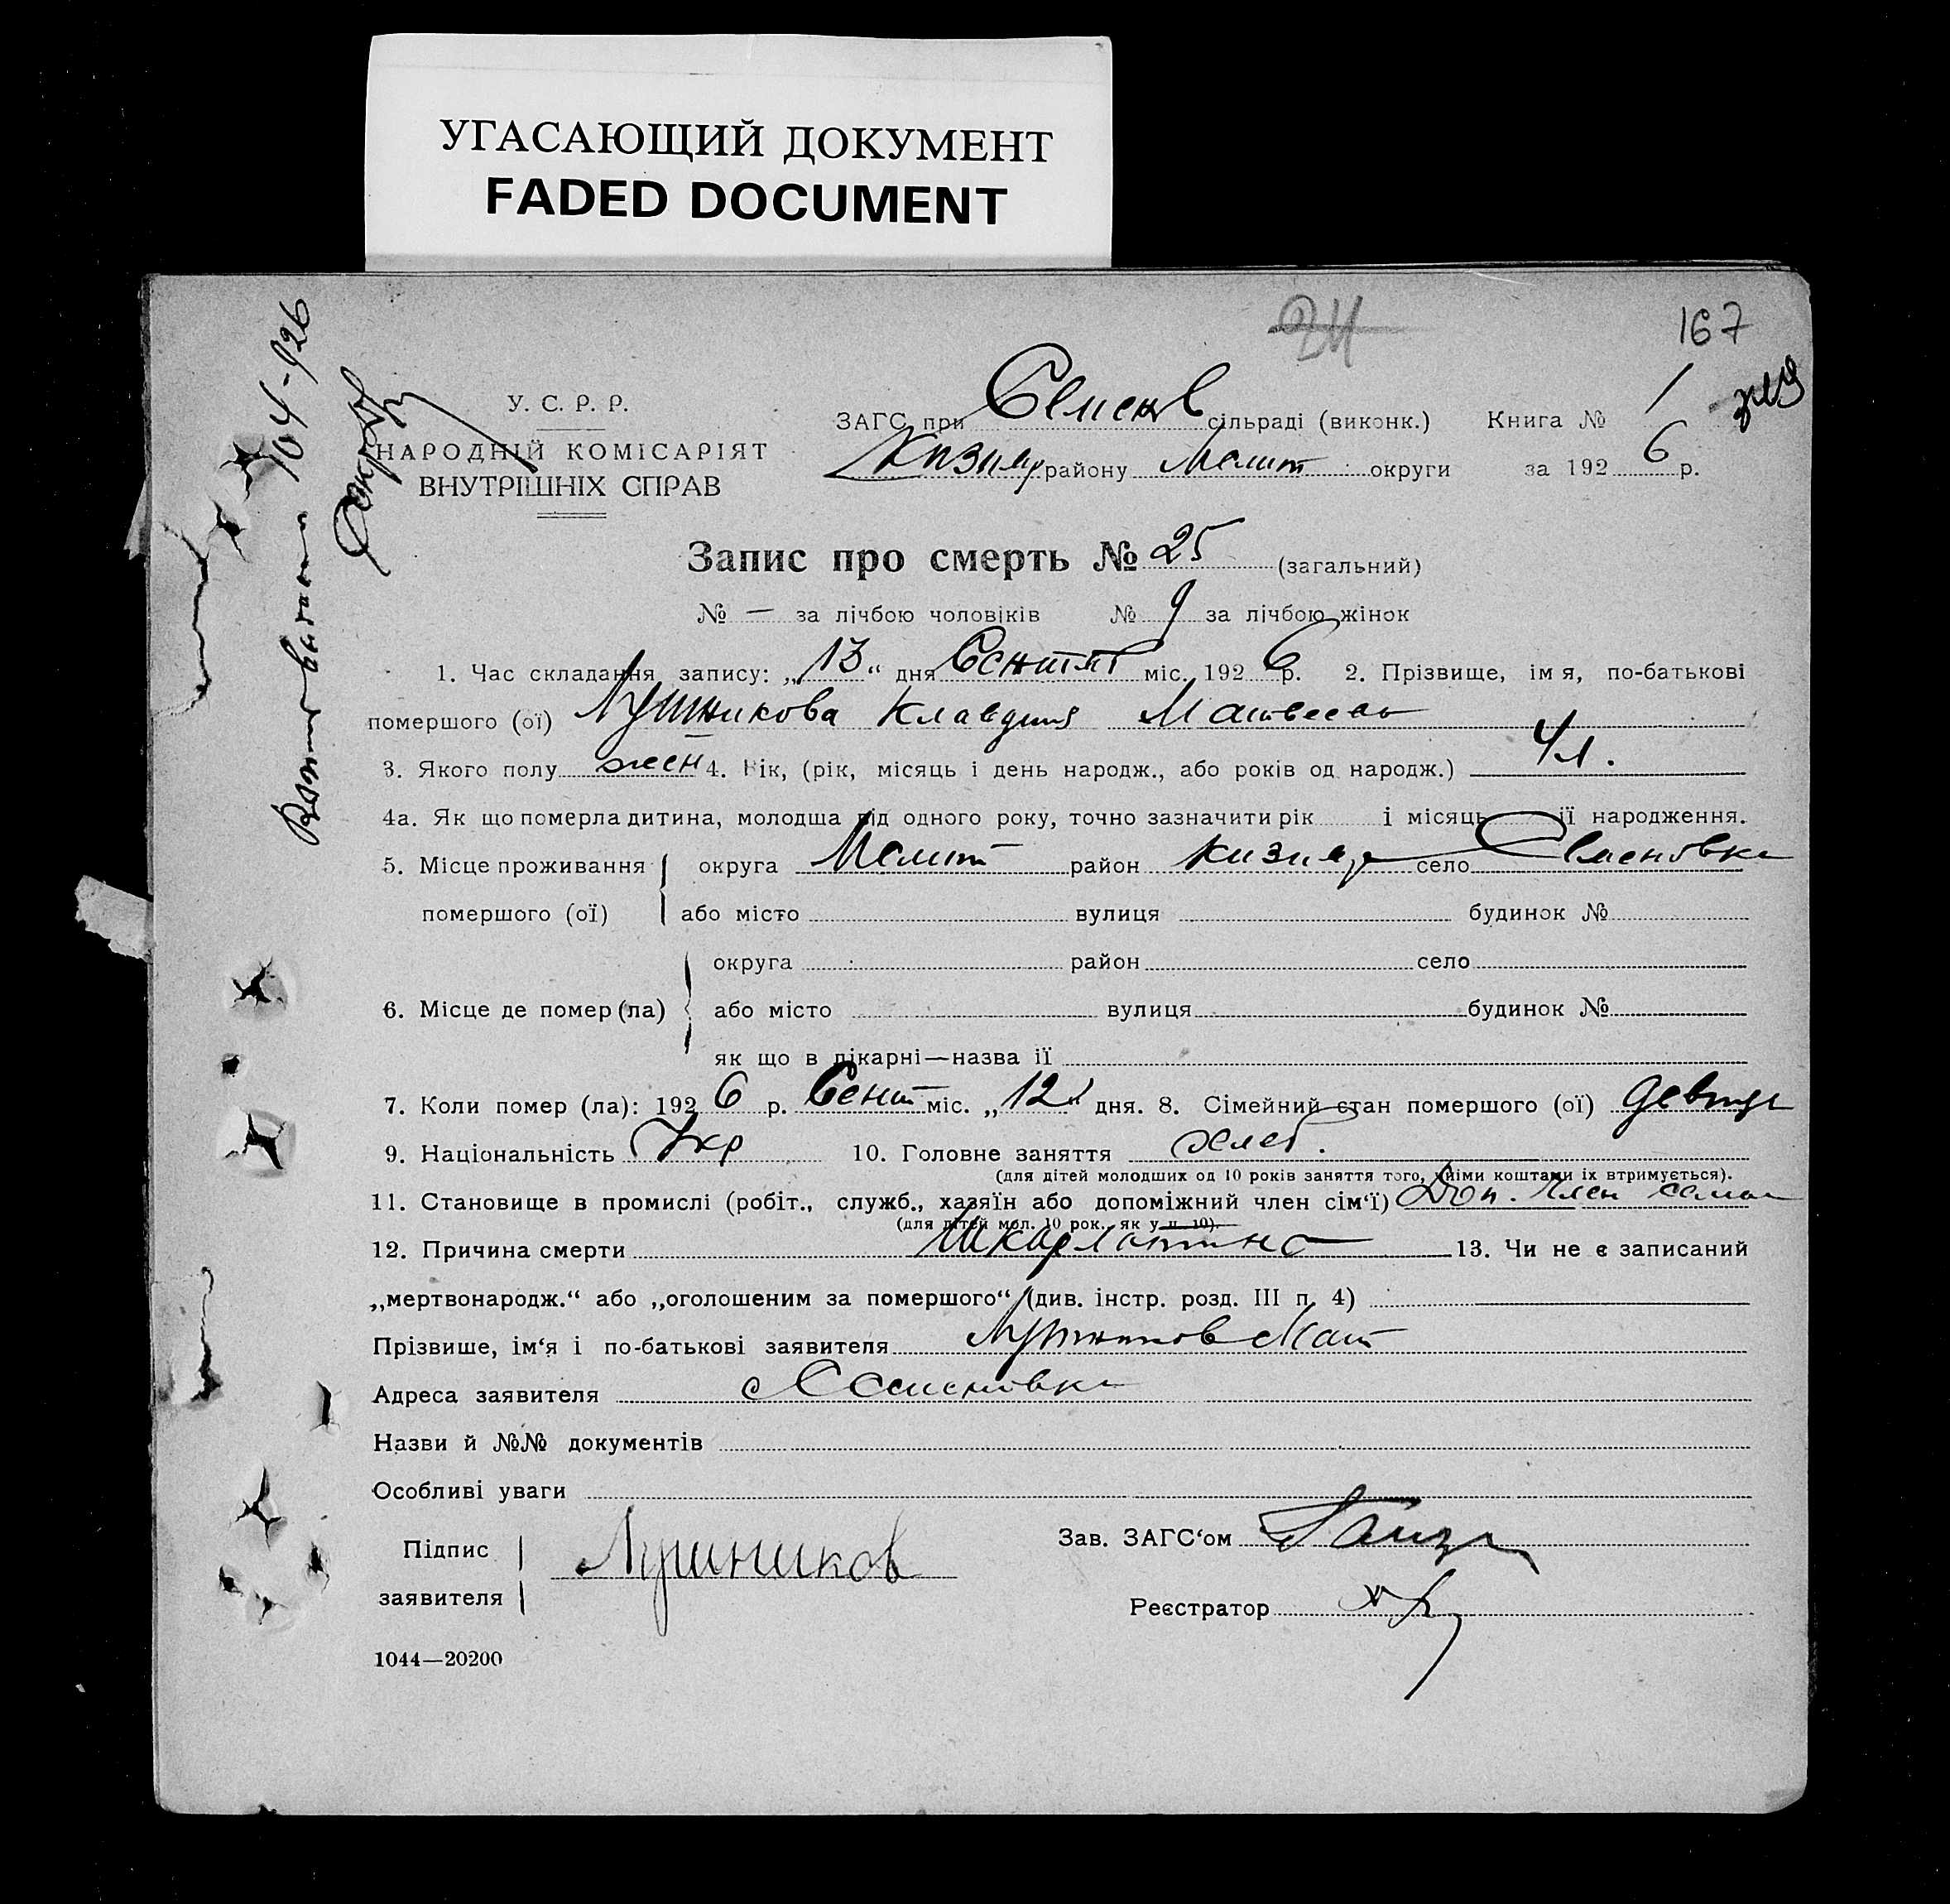 УГАСАЮЩИЙ ДОКУМЕНТ
FADED DOCUMENT
24
167
У. С. Р. Р.
НАРОДНІЙ КОМІСАРІЯТ
ВНУТРІШНІХ СПРАВ
ЗАГС при Семенов сільраді (виконк.) Книга № 1
Кизияр району Мелит округи за 1926 р.
104-926
Запис про смерть № 25 (загальний)
№ — за лічбою чоловіків № 9 за лічбою жінок
1. Час складання запису: „13“ дня Сентяб міс. 1926 р. 2. Прізвище, ім я, по-батькові
помершого (ої) Лушникова Клавдия Матвеев
3. Якого полу жен 4. Вік, (рік, місяць і день народж., або років од народж.) 4 л.
4а. Як що померла дитина, молодша від одного року, точно зазначити рік і місяць її народження.
5. Місце проживання округа Мелит район Кизияр село Семеновка
помершого (ої) або місто вулиця будинок №
округа район село
6. Місце де помер (ла) або місто вулиця будинок №
як що в лікарні—назва її
7. Коли помер (ла): 1926 р. Сент міс. „12“ дня. 8. Сімейний стан помершого (ої) девица
9. Національність Укр 10. Головне заняття хлеб.
(для дітей молодших од 10 років заняття того, чиїми коштами їх втримується).
11. Становище в промислі (робіт., служб., хазяїн або допоміжний член сім‘ї) Доп. член семьи
(для дітей мол. 10 рок., як у п. 10).
12. Причина смерти Шкарлатина 13. Чи не є записаний
„мертвонародж.“ або „оголошеним за помершого“ (див. інстр. розд. III п. 4)
Прізвише, ім‘я і по-батькові заявителя Лушников Мат
Адреса заявителя с Семеновка
Назви й №№ документів
Особливі уваги
Підпис Лушников Зав. ЗАГС‘ом
заявителя Реєстратор
1044—20200